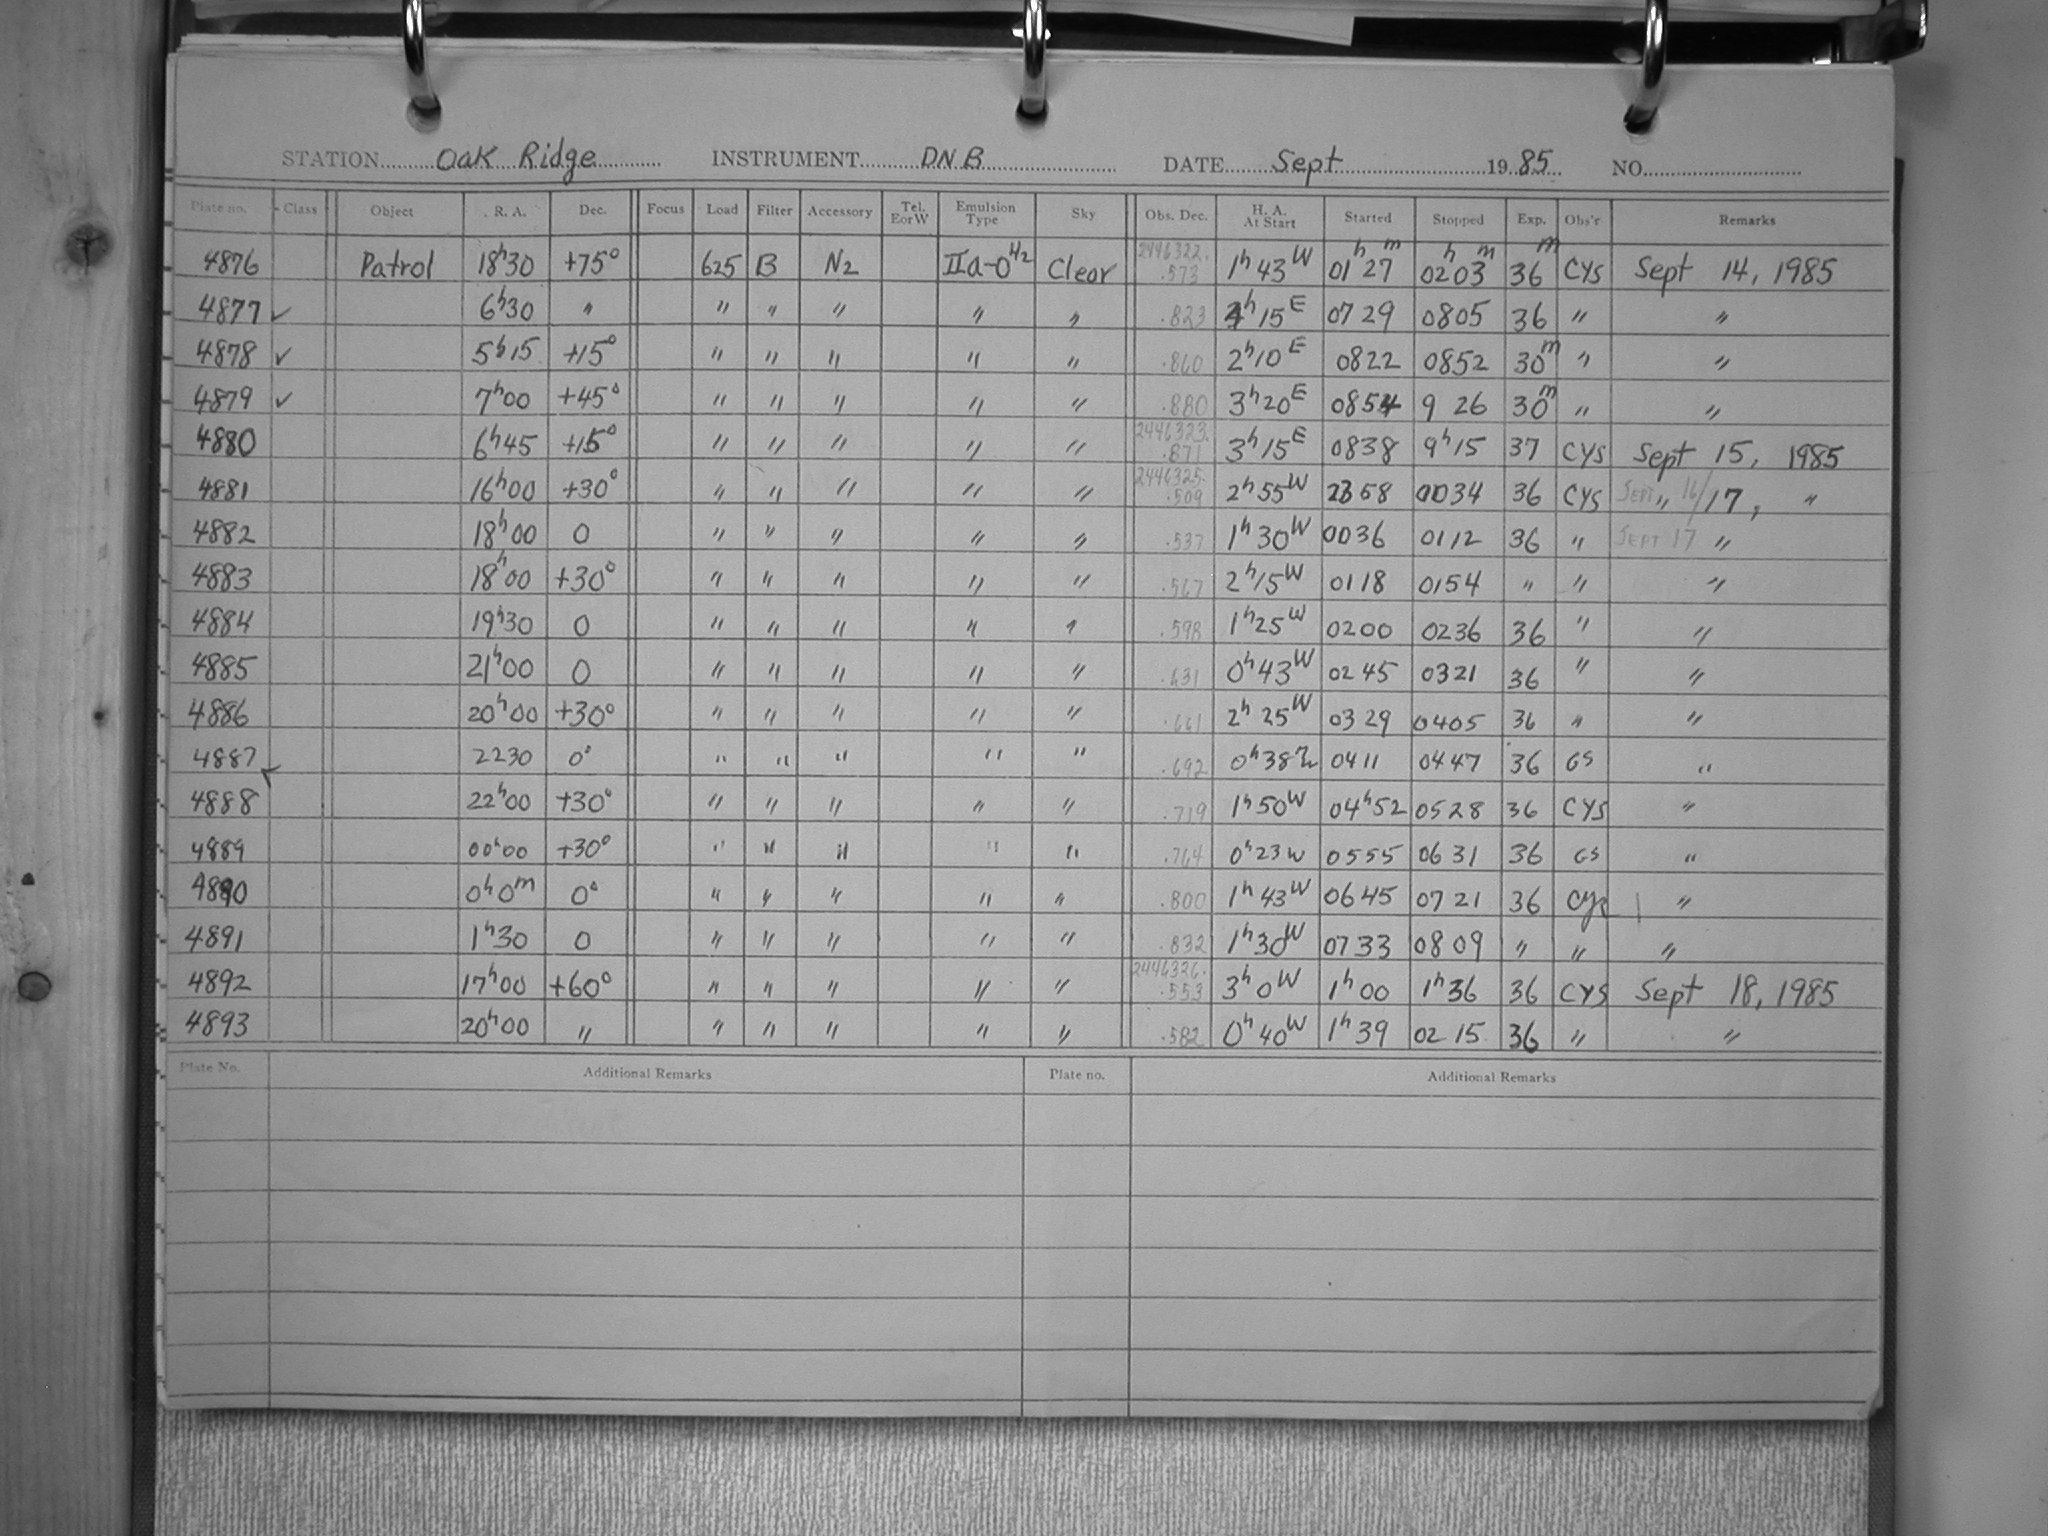 STATION Oak Ridge INSTRUMENT DNB DATE Sept 1985 NO.
Plate no. Class Object R. A. Dec. Focus Load Filter Accessory Tel. E or W Emulsion Type Sky Obs. Dec. H. A. At Start Started Stopped Exp. Obs'r Remarks
4876 Patrol 18h30 +75° 625 B N2 IIa-O H2 Clear 2446322. .573 1h 43 W 01h 27m 02h 03m 36m CYS Sept 14, 1985
4877 ✓ 6h30 " " " " " " .823 h 15 E 07 29 0805 36 " "
4878 ✓ 5h15 +15° " " " " " .860 2h10 E 0822 0852 30m " "
4879 ✓ 7h00 +45° " " " " " .880 3h20 E 0854 9 26 30m " "
4880 6h45 +15° " " " " " 2446323. .871 3h15 E 0838 9h15 37 CYS Sept 15, 1985
4881 16h00 +30° " " " " " 2446325. .509 2h55 W 2358 0034 36 CYS Sept " 16/17, "
4882 18h00 0 " " " " " .537 1h30 W 0036 0112 36 " Sept 17 "
4883 18h00 +30° " " " " " .567 2h15 W 0118 0154 " " "
4884 19h30 0 " " " " " .598 1h25 W 0200 0236 36 " "
4885 21h00 0 " " " " " .631 0h43 W 0245 0321 36 " "
4886 20h00 +30° " " " " " .661 2h 25 W 03 29 0405 36 " "
4887 ✓ 2230 0° " " " " " .692 0h38 0411 0447 36 GS "
4888 22h00 +30° " " " " " .719 1h50 W 04h52 0528 36 CYS "
4889 00h00 +30° " " " " " .764 0h23 W 0555 0631 36 GS "
4890 0h0m 0° " " " " " .800 1h 43 W 0645 0721 36 CYS "
4891 1h30 0 " " " " " .832 1h30 W 0733 0809 " " "
4892 17h00 +60° " " " " " 2446326. .553 3h 0 W 1h00 1h36 36 CYS Sept 18, 1985
4893 20h00 " " " " " " .582 0h 40 W 1h 39 02 15 36 " "
Plate No. Additional Remarks Plate no. Additional Remarks